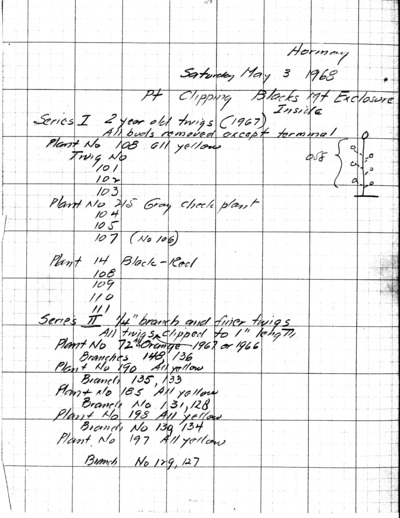 Hormay
Saturday May 3 1968
Pt Clipping Blocks Mt Exclosure
Inside
Series I 2 year old twigs (1967)
All buds removed except terminal
Plant No 108 all yellow
Twig No
101
102
103
Plant No 215 Gray check plant
104
105
107 (No 106)
Plant 14 Black-Red
108
109
110
111
Series II 1/4" branch and finer twigs
All twigs clipped to 1" length
Plant No 72 Orange 1967 or 1966
Branches 148, 136
Plant No 190 All yellow
Branch 135, 133
Plant No 185 All yellow
Branch No 131, 128
Plant No 198 All yellow
Branch No 130, 134
Plant No 197 All yellow
Branch No 129, 127